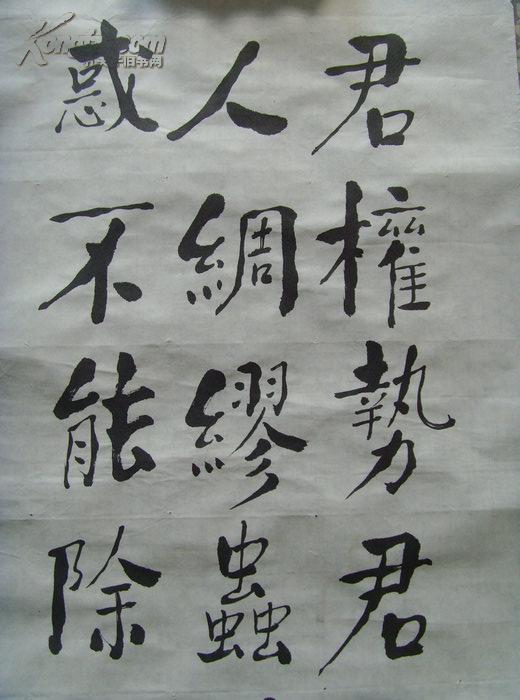 君權勢君
人綢繆蟲
惑不能除
Kongfz.com
孔夫子旧书网